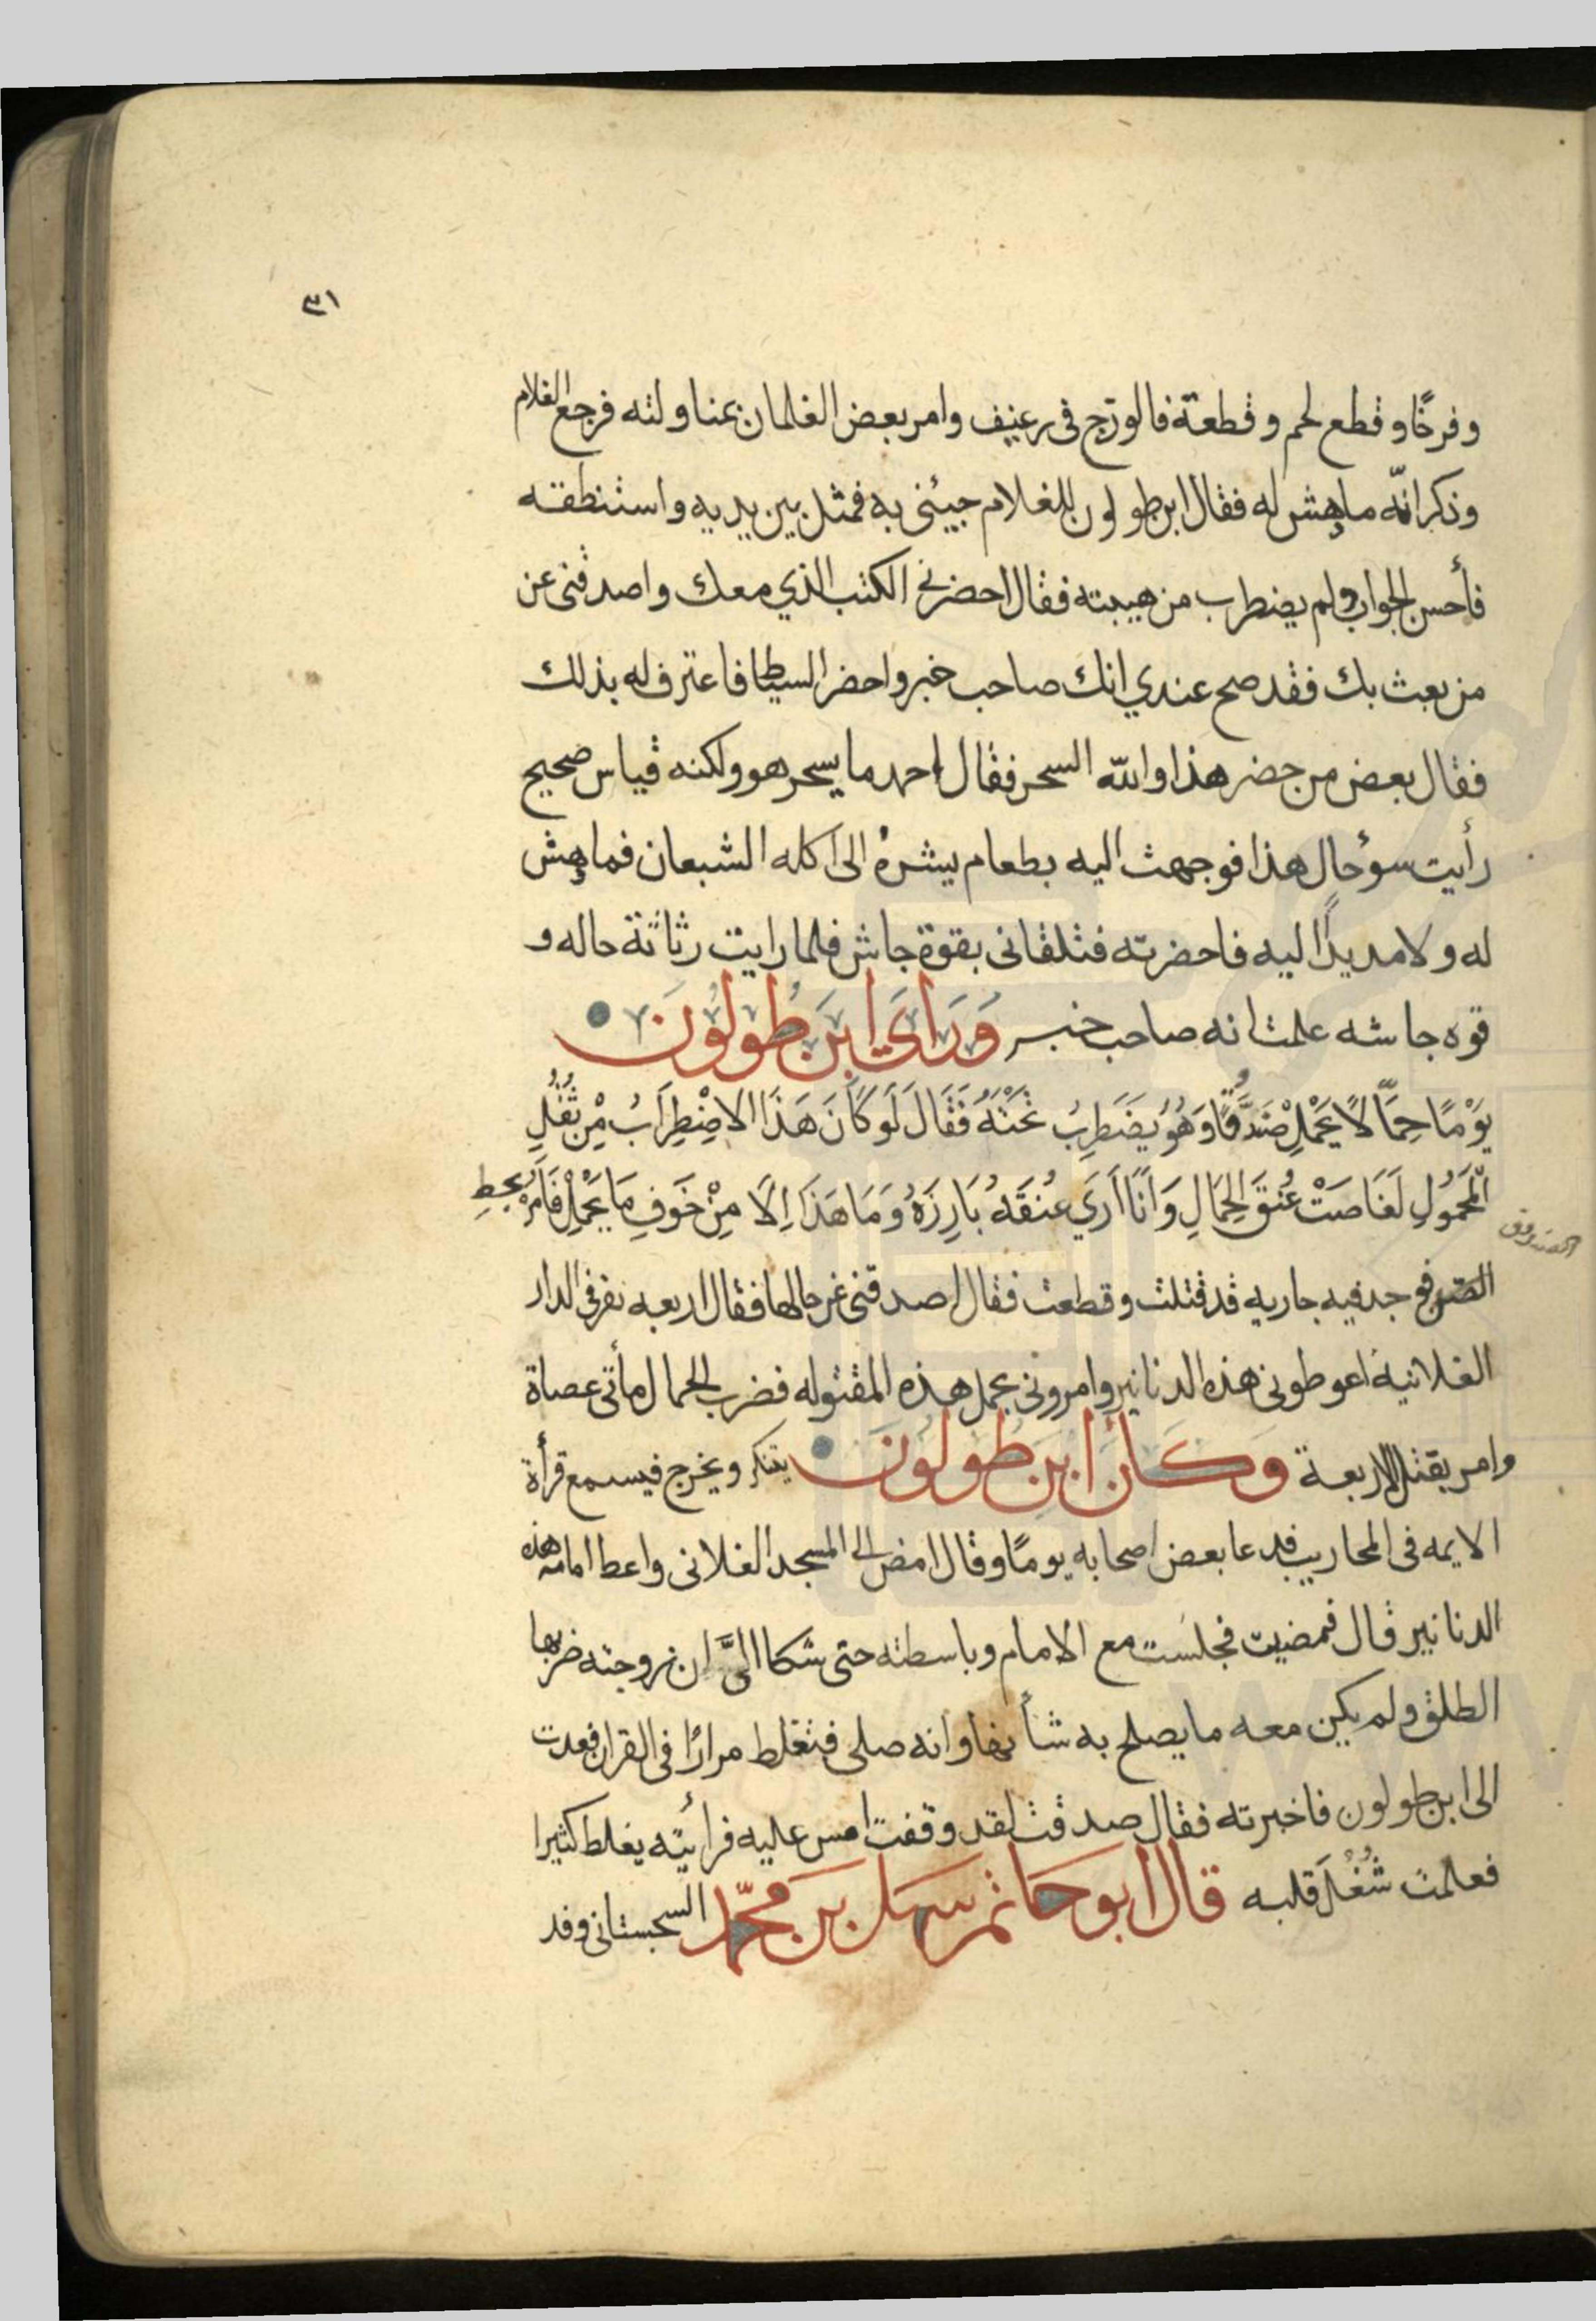 ٣١
وفرخًا وقطع لحم وقطعة فالوزج فى رغيف وامر بعض الغلمان بمناولته فرجع الغلام
وذكر انّه ما هش له فقال ابن طولون للغلام جيئنى به فمثل بين يديه واستنطقه
فأحسن الجواب ولم يضطرب من هيبته فقال احضرني الكتب الذي معك واصدقنى عن
من بعث بك فقد صح عندي انك صاحب خبر واحضر السياط فاعترف له بذلك
فقال بعض من حضر هذا والله السحر فقال احمد ما يسحر هو ولكنه قياس صحيح
رأيت سوء حال هذا فوجهت اليه بطعام يشره الى اكله الشبعان فما هش
له ولا مد يدًا اليه فاحضرته فتلقانى بقوة جاش فلما رايت رثاثة حاله و
قوه جاشه علمت انه صاحب خبر وَرَاىَ ابنَ طُولُونَ
يَوْمًا حِمَّالًا يَحْمِلُ صَنْدُوقًا وَهُوَ يَضْطَرِبُ تَحْتَهُ فَقَالَ لَو كَانَ هَذَا الاضْطِرَابُ مِنْ ثُقْلِ
الْمَحْمُولِ لَغَاصَتْ عُنقَ الحِمَالِ وَانَا اَرَي عُنقَهُ بَارِزَهُ وَمَا هَذَا اِلَا مِنْ خَوفِ مَا يَحْمِلُ فَاَمَرَ بِحَطِ
الصندوق
الصندوق فوجد فيه جاريه قد قتلت وقطعت فقال اصدقنى عن حالها فقال اربعه نفر فى الدار
الفلانية اعوطونى هذه الدنانير وامرونى بحمل هذه المقتوله فضرب الحمال مأتى عصاة
وامر بقتل الاربعة وَكَانَ ابن طولون يتنكر ويخرج فيسمع قرأة
الايمه فى المحاريب فدعا بعض اصحابه يومًا وقال امض الى المسجد الفلانى واعط امامه هذه
الدنانير قال فمضيت فجلست مع الامام وباسطته حتى شكا اليَّ ان زوجته ضربها
الطلق ولم يكين معه ما يصلح به شأنها وانه صلى فتغلط مرارًا فى القران فعدت
الى ابن طولون فاخبرته فقال صدقت لقد وقفت امس عليه فرأيته يغلط كثيرا
فعلمت شُغُلَ قلبه قال ابو حاتم سهل بن محمّد السجستانى وفد